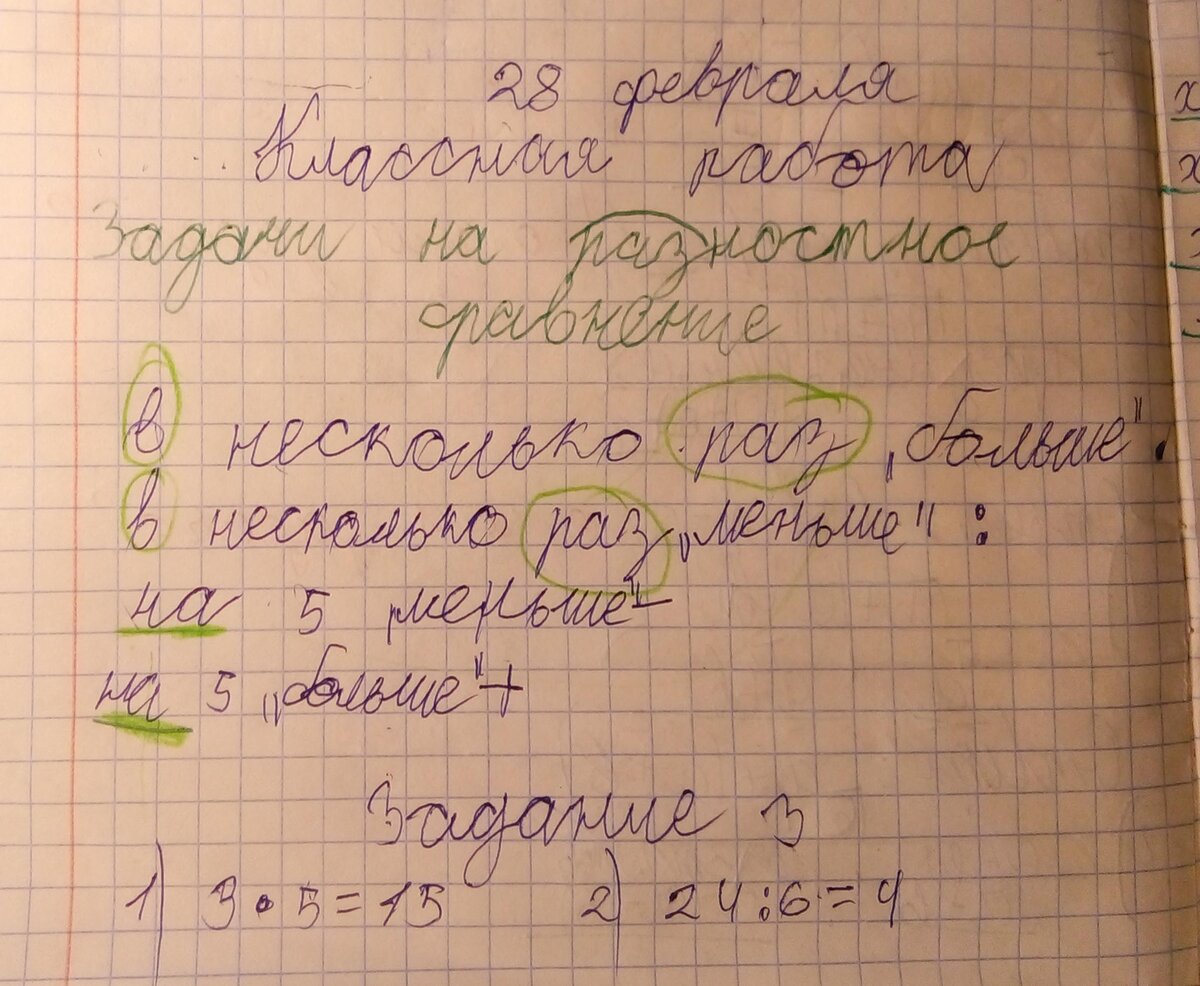 28 февраля
Классная работа
Задачи на разностное
сравнение
в несколько раз „больше" .
в несколько раз „меньше" :
на 5 „меньше" –
на 5 „больше" +
Задание 3
1) 3 · 5 = 15 2) 24 : 6 = 4